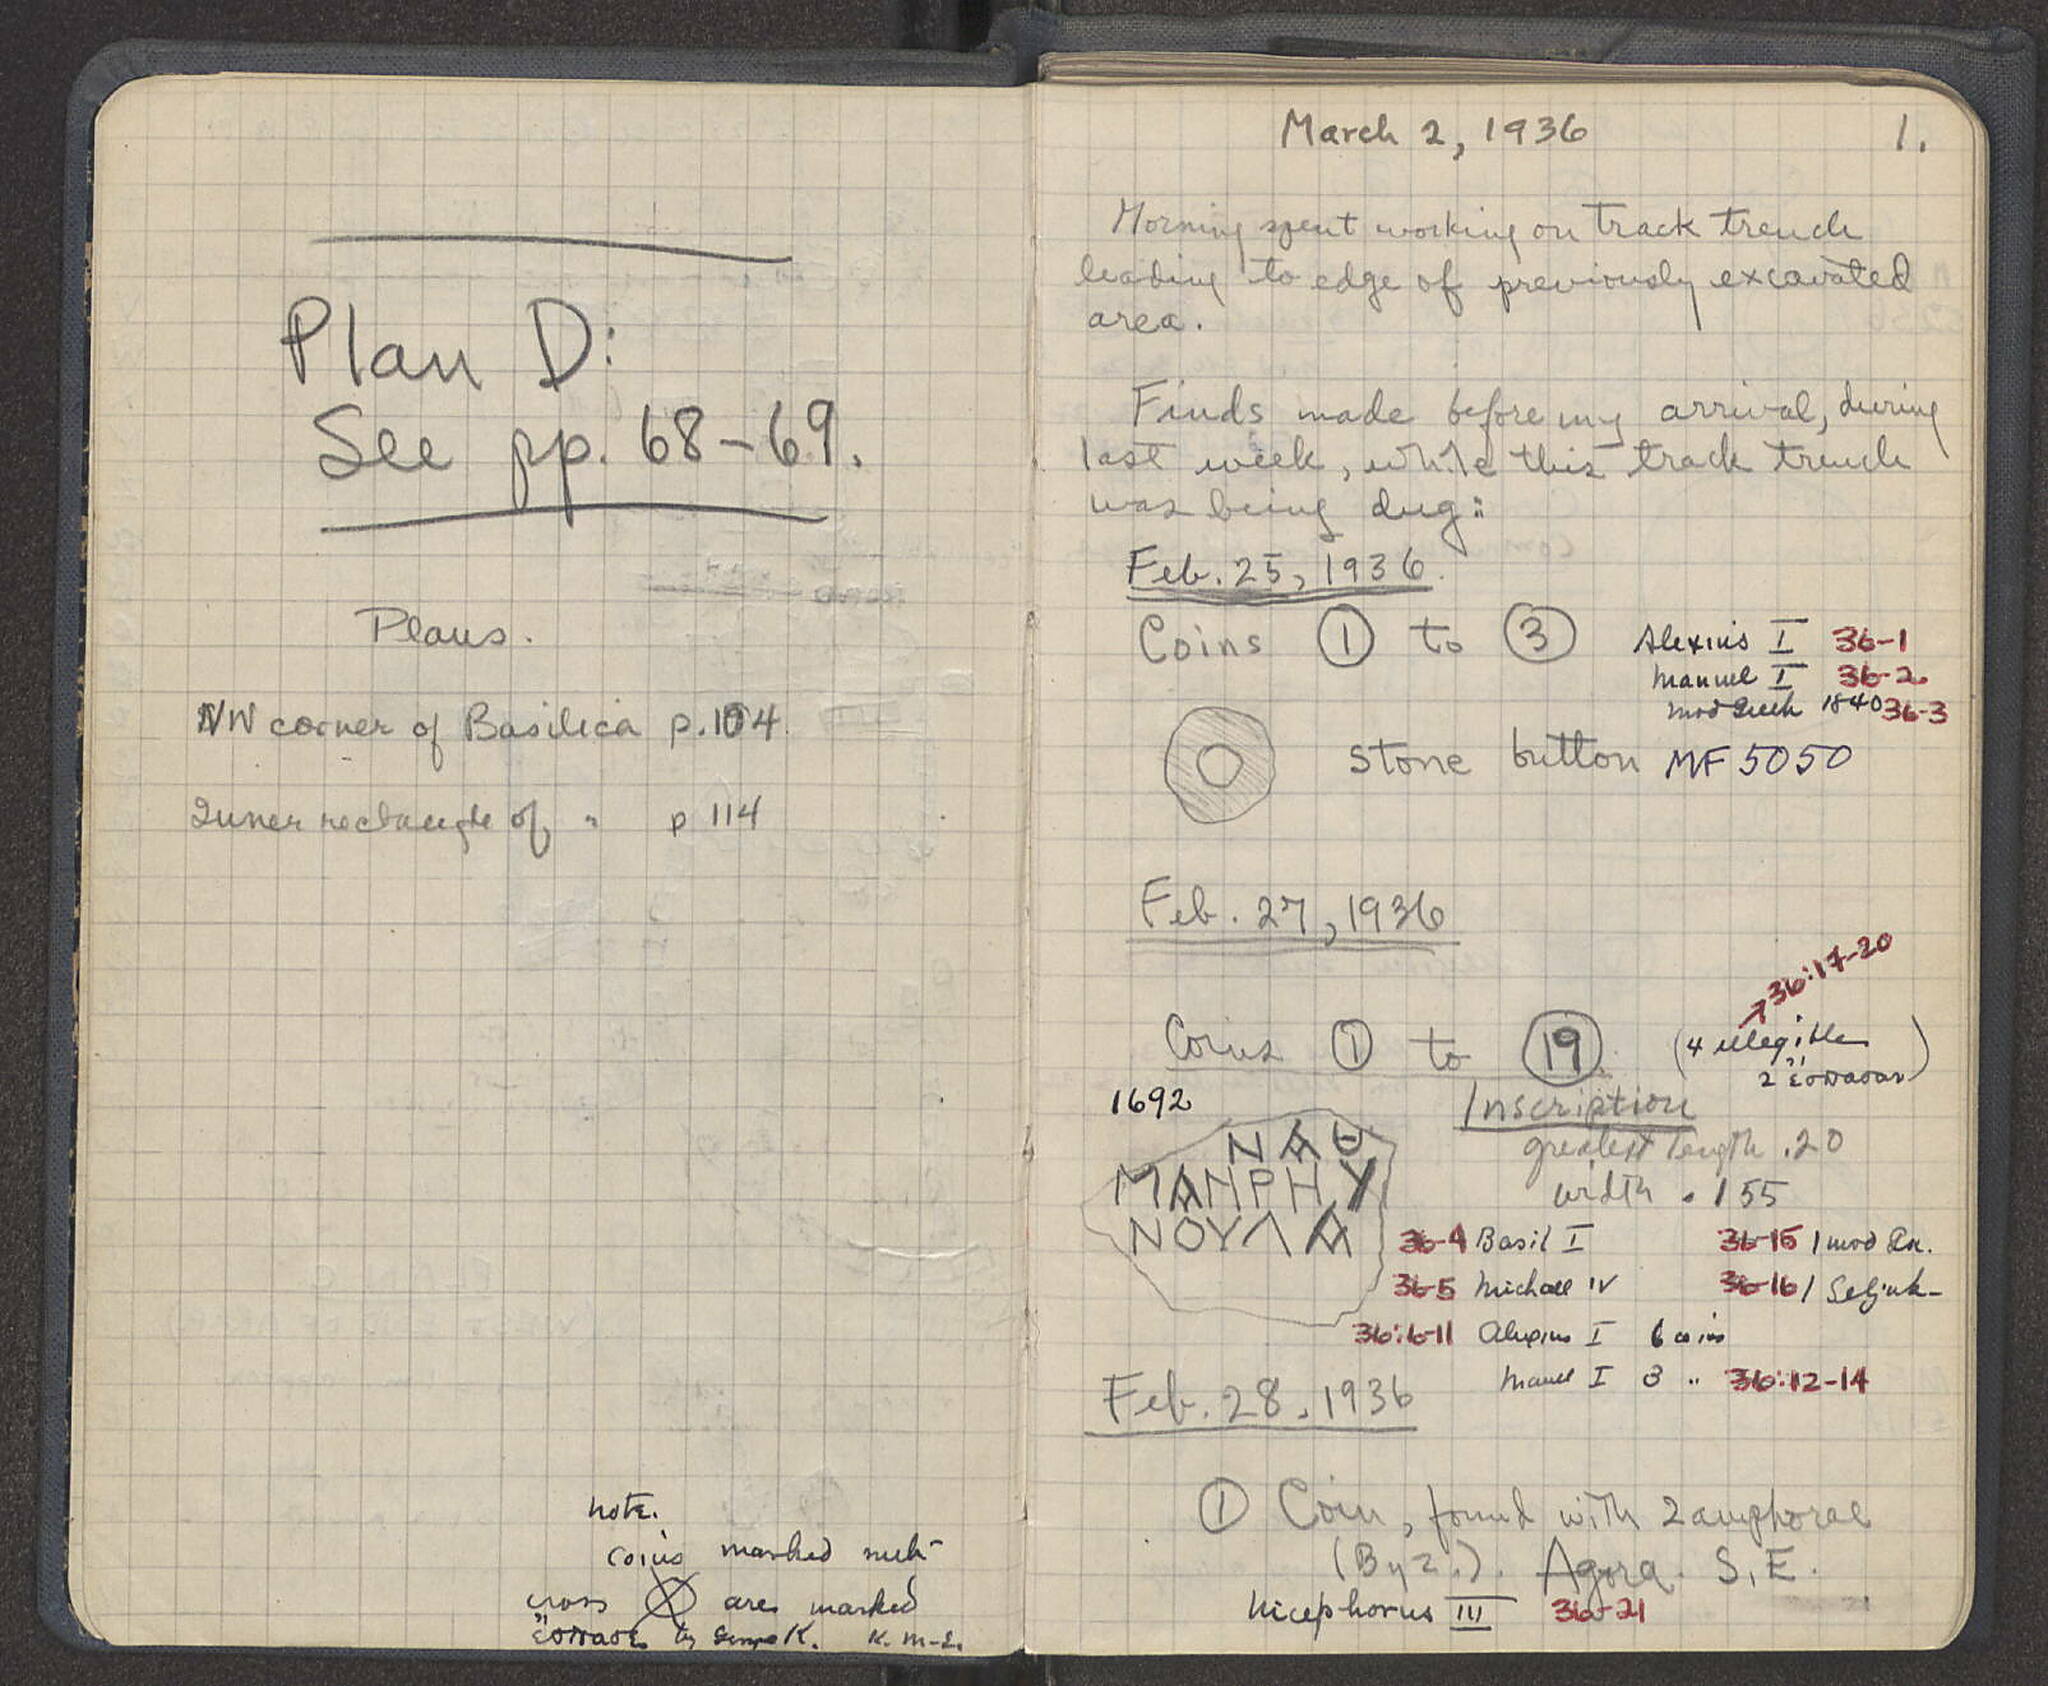 Plan D:
See pp. 68-69.
Plans.
NW corner of Basilica p. 104.
Inner rectangle of " p 114
note.
coins marked with
cross ⊗ are marked
ἔσπασε by George K. K. M-E.
March 2, 1936 1.
Morning spent working on track trench
leading to edge of previously excavated
area.
Finds made before my arrival, during
last week, while this track trench
was being dug:
Feb. 25, 1936.
Coins ① to ③ Alexius I 36-1
Manuel I 36-2
mod Greek 1840 36-3
stone button MF 5050
Feb. 27, 1936
36:17-20
Coins ① to ⑲ (4 illegible
2 ἔσπασαν)
1692
Inscription
greatest length .20
width .155
ΜΑΝΡΗΥ
ΝΟΥΛΑ
36-4 Basil I 36-15 1 mod Gr.
36-5 Michael IV 36-16 1 Seljuk-
36:6-11 Alexius I 6 coins
Manuel I 3 " 36:12-14
Feb. 28, 1936
① Coin, found with 2 amphorae
(Byz.). Agora S.E.
Nicephorus III 36-21